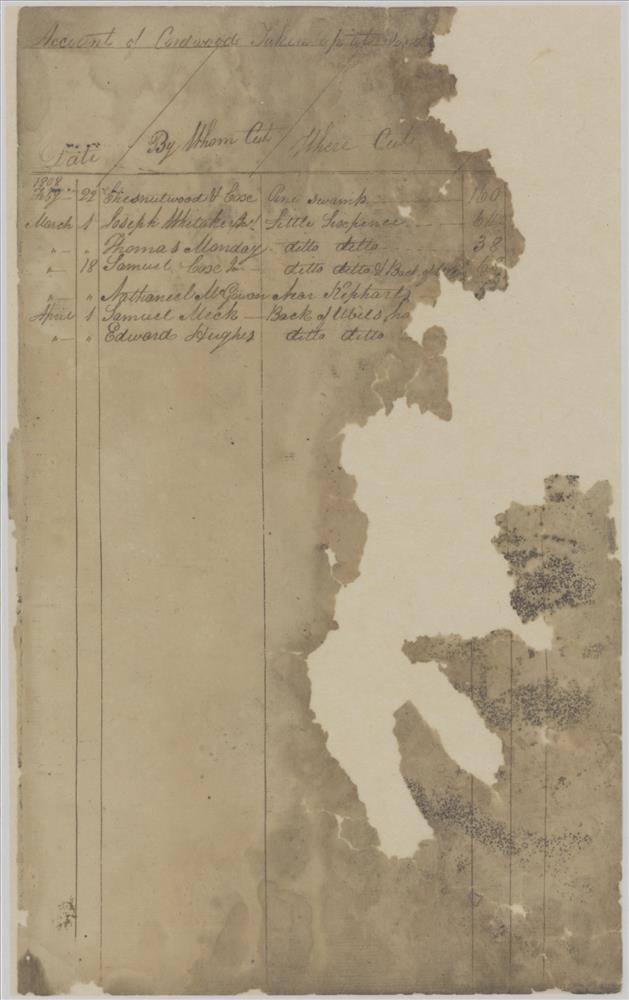 Account of Cordwood Taken up
Date By Whom Cut Where Cut
1808
Feby 22 Chesnutwood & Coxe Pine Swamp 160
March 1 Joseph Whitaker Little Sixpence 64
" " Thomas Monday ditto ditto 38
" 18 Samuel Coxe Jr ditto ditto & Back of
" " Nathaneel McGowan Near Kepharts
April 1 Samuel Meck Back of
" " Edward Hughes ditto ditto